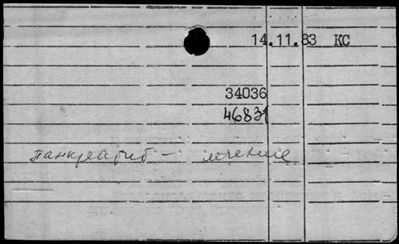 14.11.83 КС
34036
46831
панкреатит — лечение